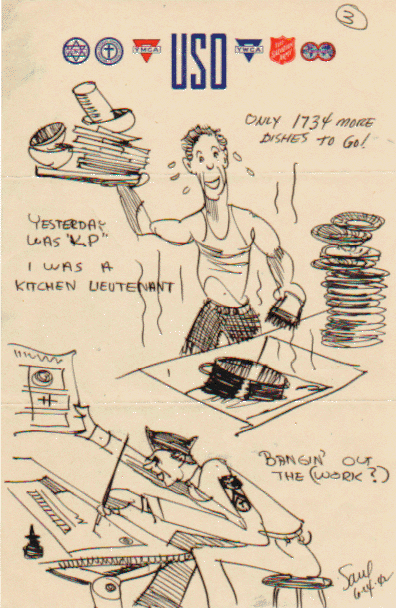 3
YMCA
USO
YWCA
THE
SALVATION
ARMY
ONLY 1734 MORE
DISHES TO GO!
YESTERDAY
WAS "K.P."
I WAS A
KITCHEN LIEUTENANT
BANGIN' OUT
THE (WORK?)
Saul